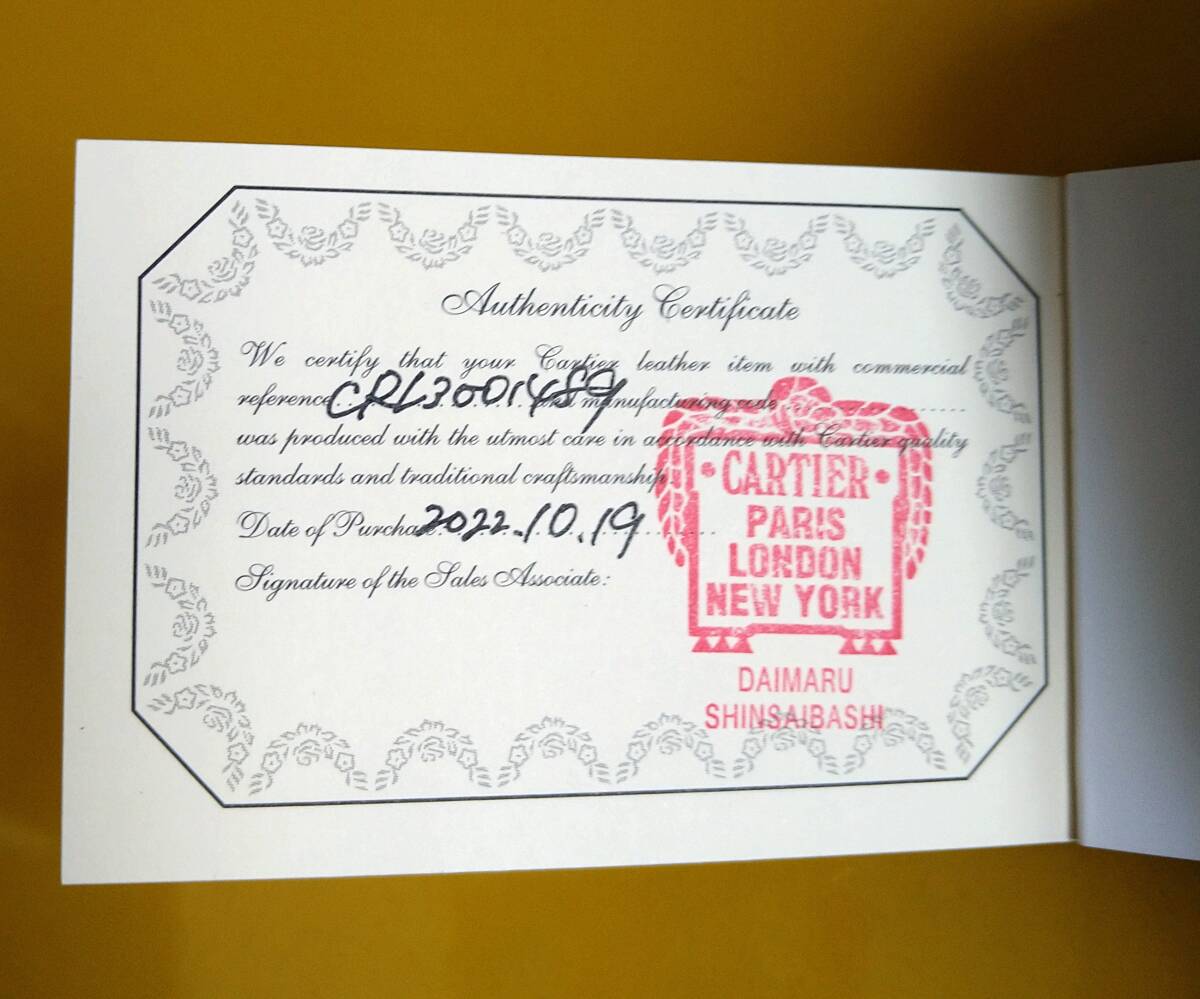 Authenticity Certificate
We certify that your Cartier leather item with commercial
reference CRL3001489 and manufacturing code
was produced with the utmost care in accordance with Cartier quality
standards and traditional craftsmanship.
Date of Purchase: 2022.10.19
Signature of the Sales Associate:
CARTIER
PARIS
LONDON
NEW YORK
DAIMARU
SHINSAIBASHI